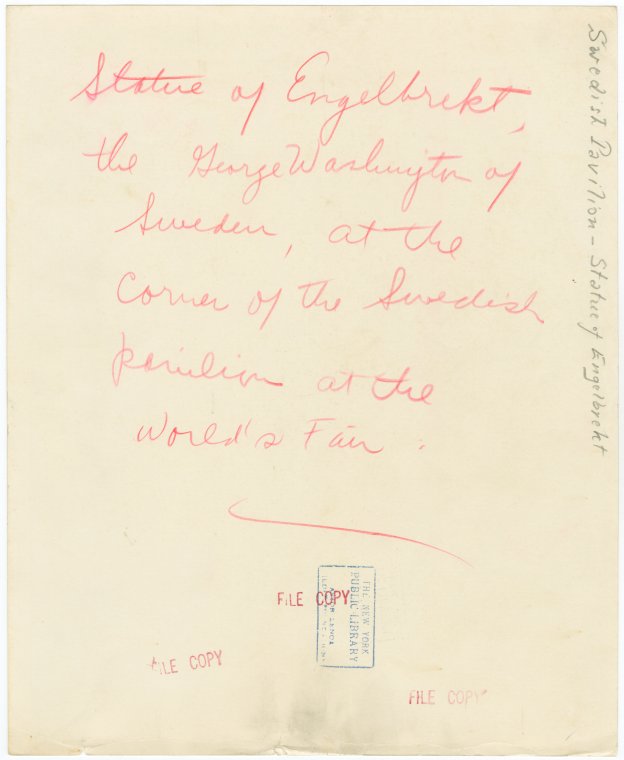 Statue of Engelbrekt,
the George Washington of
Sweden, at the
corner of the Swedish
pavilion at the
World's Fair.
Swedish Pavilion - Statue of Engelbrekt
FILE COPY
THE NEW YORK
PUBLIC LIBRARY
FILE COPY
FILE COPY